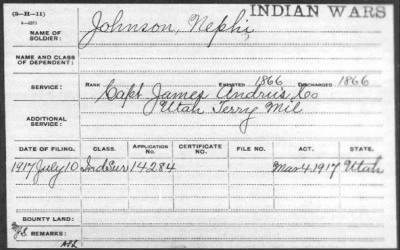 (3-H-11) INDIAN WARS
NAME OF SOLDIER: Johnson, Nephi,
NAME AND CLASS OF DEPENDENT:
SERVICE: RANK ENLISTED 1866 DISCHARGED 1866
Capt James Andrus Co
Utah Terry Mil
ADDITIONAL SERVICE:
DATE OF FILING. CLASS. APPLICATION NO. CERTIFICATE NO. FILE NO. ACT. STATE.
1917 July 10 Ind Sur 14284 Mar 4, 1917 Utah
BOUNTY LAND:
REMARKS: